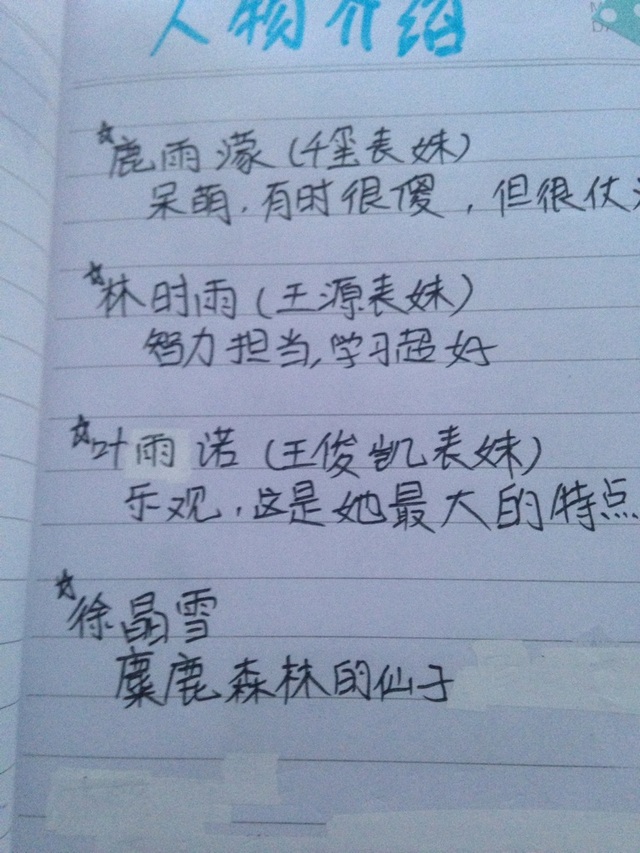 人物介绍
☆鹿雨濛(千玺表妹)
呆萌.有时很傻，但很仗
☆林时雨(王源表妹)
智力担当,学习超好
☆叶雨诺(王俊凯表妹)
乐观，这是她最大的特点.
☆徐晶雪
麋鹿森林的仙子